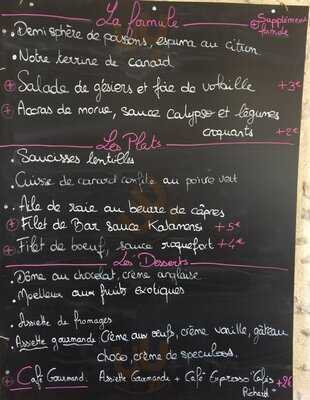 La formule
⊕ Supplément formule
• Demi sphère de poissons, espuma au citron
• Notre terrine de canard
⊕ Salade de gésiers et foie de volaille +3€
⊕ Accras de morue, sauce calypso et légumes
croquants +2€
Les Plats
• Saucisses lentilles
• Cuisse de canard confite au poivre vert
• Aile de raie au beurre de câpres
⊕ Filet de Bar sauce Kalamensi +5€
⊕ Filet de boeuf, sauce roquefort +4€
Les Desserts
• Dôme au chocolat, crème anglaise
• Moelleux aux fruits exotiques
• Assiette de fromages
• Assiette gourmande Crème aux œufs, crème vanille, gâteau
choco, crème de speculoos.
⊕ Café Gourmand. Assiette Gourmande + Café Expresso "Cafés
Richard" +2€